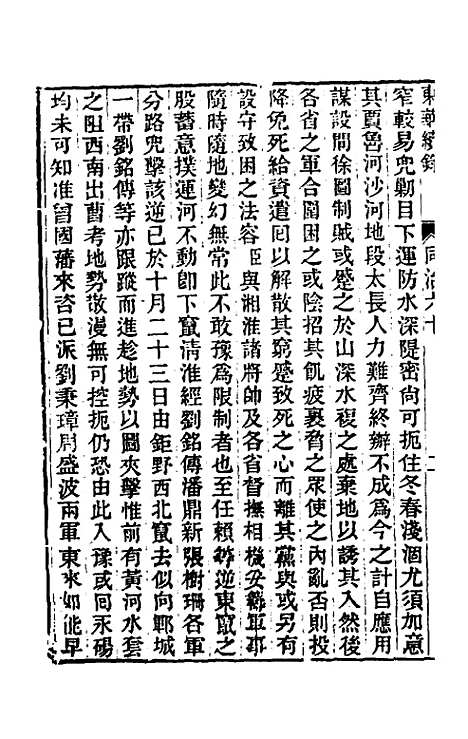 東華續錄 同治六十
窄較易兜勦目下運防水深隄密尚可扼住冬春淺涸尤須加意
其賈魯河沙河地段太長人力難齊終辦不成爲今之計自應用
謀設間徐圖制賊或蹙之於山深水複之處棄地以誘其入然後
各省之軍合圍困之或陰招其飢疲裹脅之眾使之內亂否則投
降免死給資遣回以解散其窮蹙致死之心而離其黨與或另有
設守致困之法容臣與湘淮諸將帥及各省督撫相機妥籌軍事
隨時隨地變幻無常此不敢豫爲限制者也至任賴等逆東竄之
股蓄意撲運河不動卽下竄清淮經劉銘傳潘鼎新張樹珊各軍
分路兜擊該逆已於十月二十三日由鉅野西北竄去似向鄆城
一帶劉銘傳等亦跟蹤而進趁地勢以圖夾擊惟前有黃河水套
之阻西南出曹考地勢散漫無可控扼仍恐由此入豫或回永碭
均未可知准曾國藩來咨已派劉秉璋周盛波兩軍東來如能早